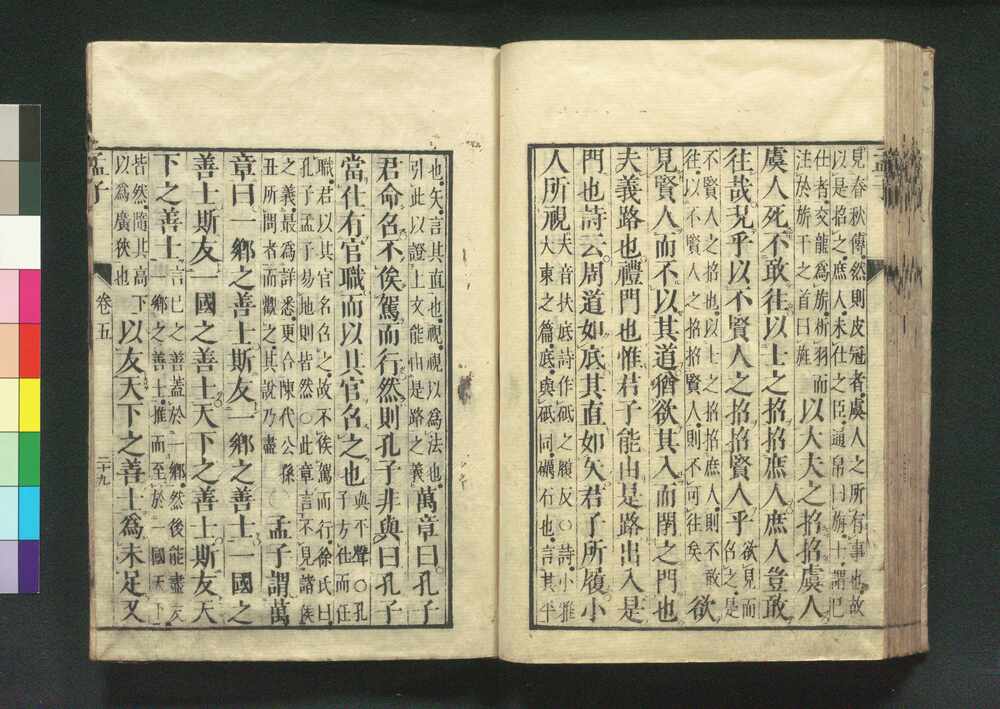 見春秋傳然則皮冠者虞人之所有事也故
以是招之庶人未仕之臣通帛曰旃士謂已
仕者交龍爲旂析羽而
注於旂干之首曰旌
以大夫之招招虞人
虞人死不敢往以士之招招庶人庶人豈敢
往哉況乎以不賢人之招招賢人乎
欲見而
召之是
不賢人之招也以士之招招庶人則不敢
往以不賢人之招招賢人則不可往矣
欲
見賢人而不以其道猶欲其入而閉之門也
夫義路也禮門也惟君子能由是路出入是
門也詩云周道如底其直如矢君子所履小
人所視
夫音扶底詩作砥之履反○詩小雅
大東之篇底與砥同礪石也言其平
也矢言其直也視視以爲法也
引此以證上文能由是路之義
萬章曰孔子
君命召不俟駕而行然則孔子非與曰孔子
當仕有官職而以其官召之也
與平聲○孔
子方仕而任
職君以其官名召之故不俟駕而行徐氏曰
孔子孟子易地則皆然○此章言不見諸侯
之義最爲詳悉更合陳代公孫
丑所問者而觀之其說乃盡
○孟子謂萬
章曰一鄉之善士斯友一鄉之善士一國之
善士斯友一國之善士天下之善士斯友天
下之善士
言己之善蓋於一鄉然後能盡友
鄉之善士推而至於一國天下
皆然隨其高下
以爲廣狹也
以友天下之善士爲未足又
孟子
卷五
二十九